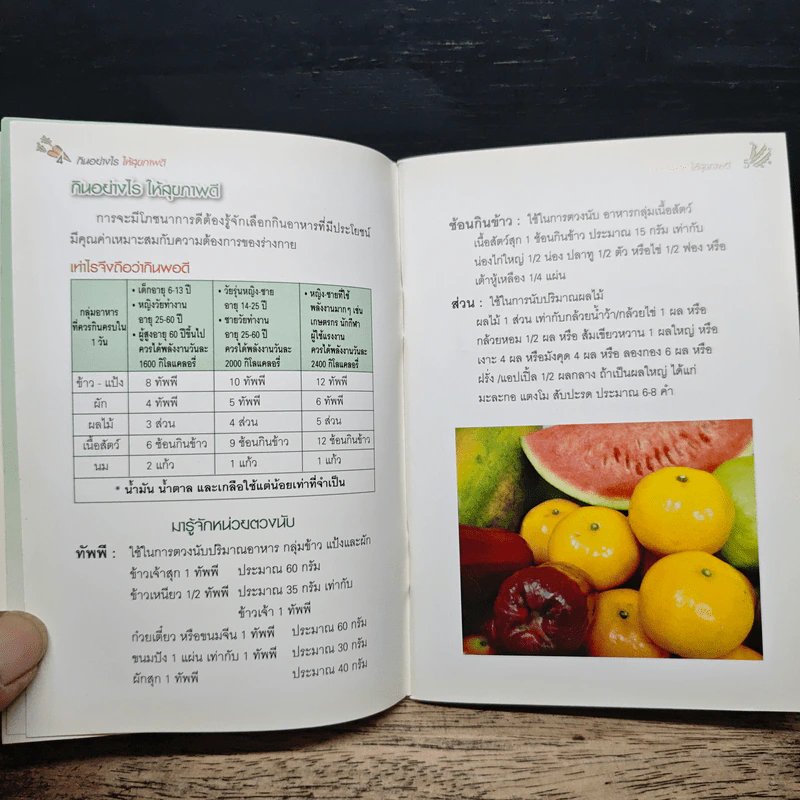 4 กินอย่างไร ให้สุขภาพดี
กินอย่างไร ให้สุขภาพดี!
การจะมีโภชนาการดีต้องรู้จักเลือกกินอาหารที่มีประโยชน์
มีคุณค่าเหมาะสมกับความต้องการของร่างกาย
เท่าไรจึงถือว่ากินพอดี
กลุ่มอาหาร
ที่ควรกินครบใน
1 วัน
• เด็กอายุ 6-13 ปี
• หญิงวัยทำงาน
อายุ 25-60 ปี
• ผู้สูงอายุ 60 ปีขึ้นไป
ควรได้พลังงานวันละ
1600 กิโลแคลอรี่
• วัยรุ่นหญิง-ชาย
อายุ 14-25 ปี
• ชายวัยทำงาน
อายุ 25-60 ปี
ควรได้พลังงานวันละ
2000 กิโลแคลอรี่
• หญิง-ชายที่ใช้
พลังงานมากๆ เช่น
เกษตรกร นักกีฬา
ผู้ใช้แรงงาน
ควรได้พลังงานวันละ
2400 กิโลแคลอรี่
ข้าว - แป้ง 8 ทัพพี 10 ทัพพี 12 ทัพพี
ผัก 4 ทัพพี 5 ทัพพี 6 ทัพพี
ผลไม้ 3 ส่วน 4 ส่วน 5 ส่วน
เนื้อสัตว์ 6 ช้อนกินข้าว 9 ช้อนกินข้าว 12 ช้อนกินข้าว
นม 2 แก้ว 1 แก้ว 1 แก้ว
* น้ำมัน น้ำตาล และเกลือใช้แต่น้อยเท่าที่จำเป็น
มารู้จักหน่วยตวงนับ
ทัพพี : ใช้ในการตวงนับปริมาณอาหาร กลุ่มข้าว แป้งและผัก
ข้าวเจ้าสุก 1 ทัพพี ประมาณ 60 กรัม
ข้าวเหนียว 1/2 ทัพพี ประมาณ 35 กรัม เท่ากับ
ข้าวเจ้า 1 ทัพพี
ก๋วยเตี๋ยว หรือขนมจีน 1 ทัพพี ประมาณ 60 กรัม
ขนมปัง 1 แผ่น เท่ากับ 1 ทัพพี ประมาณ 30 กรัม
ผักสุก 1 ทัพพี ประมาณ 40 กรัม
ให้สุขภาพดี 5
ช้อนกินข้าว : ใช้ในการตวงนับ อาหารกลุ่มเนื้อสัตว์
เนื้อสัตว์สุก 1 ช้อนกินข้าว ประมาณ 15 กรัม เท่ากับ
น่องไก่ใหญ่ 1/2 น่อง ปลาทู 1/2 ตัว หรือไข่ 1/2 ฟอง หรือ
เต้าหู้เหลือง 1/4 แผ่น
ส่วน : ใช้ในการนับปริมาณผลไม้
ผลไม้ 1 ส่วน เท่ากับกล้วยน้ำว้า/กล้วยไข่ 1 ผล หรือ
กล้วยหอม 1/2 ผล หรือ ส้มเขียวหวาน 1 ผลใหญ่ หรือ
เงาะ 4 ผล หรือมังคุด 4 ผล หรือ ลองกอง 6 ผล หรือ
ฝรั่ง /แอปเปิ้ล 1/2 ผลกลาง ถ้าเป็นผลใหญ่ ได้แก่
มะละกอ แตงโม สับปะรด ประมาณ 6-8 คำ